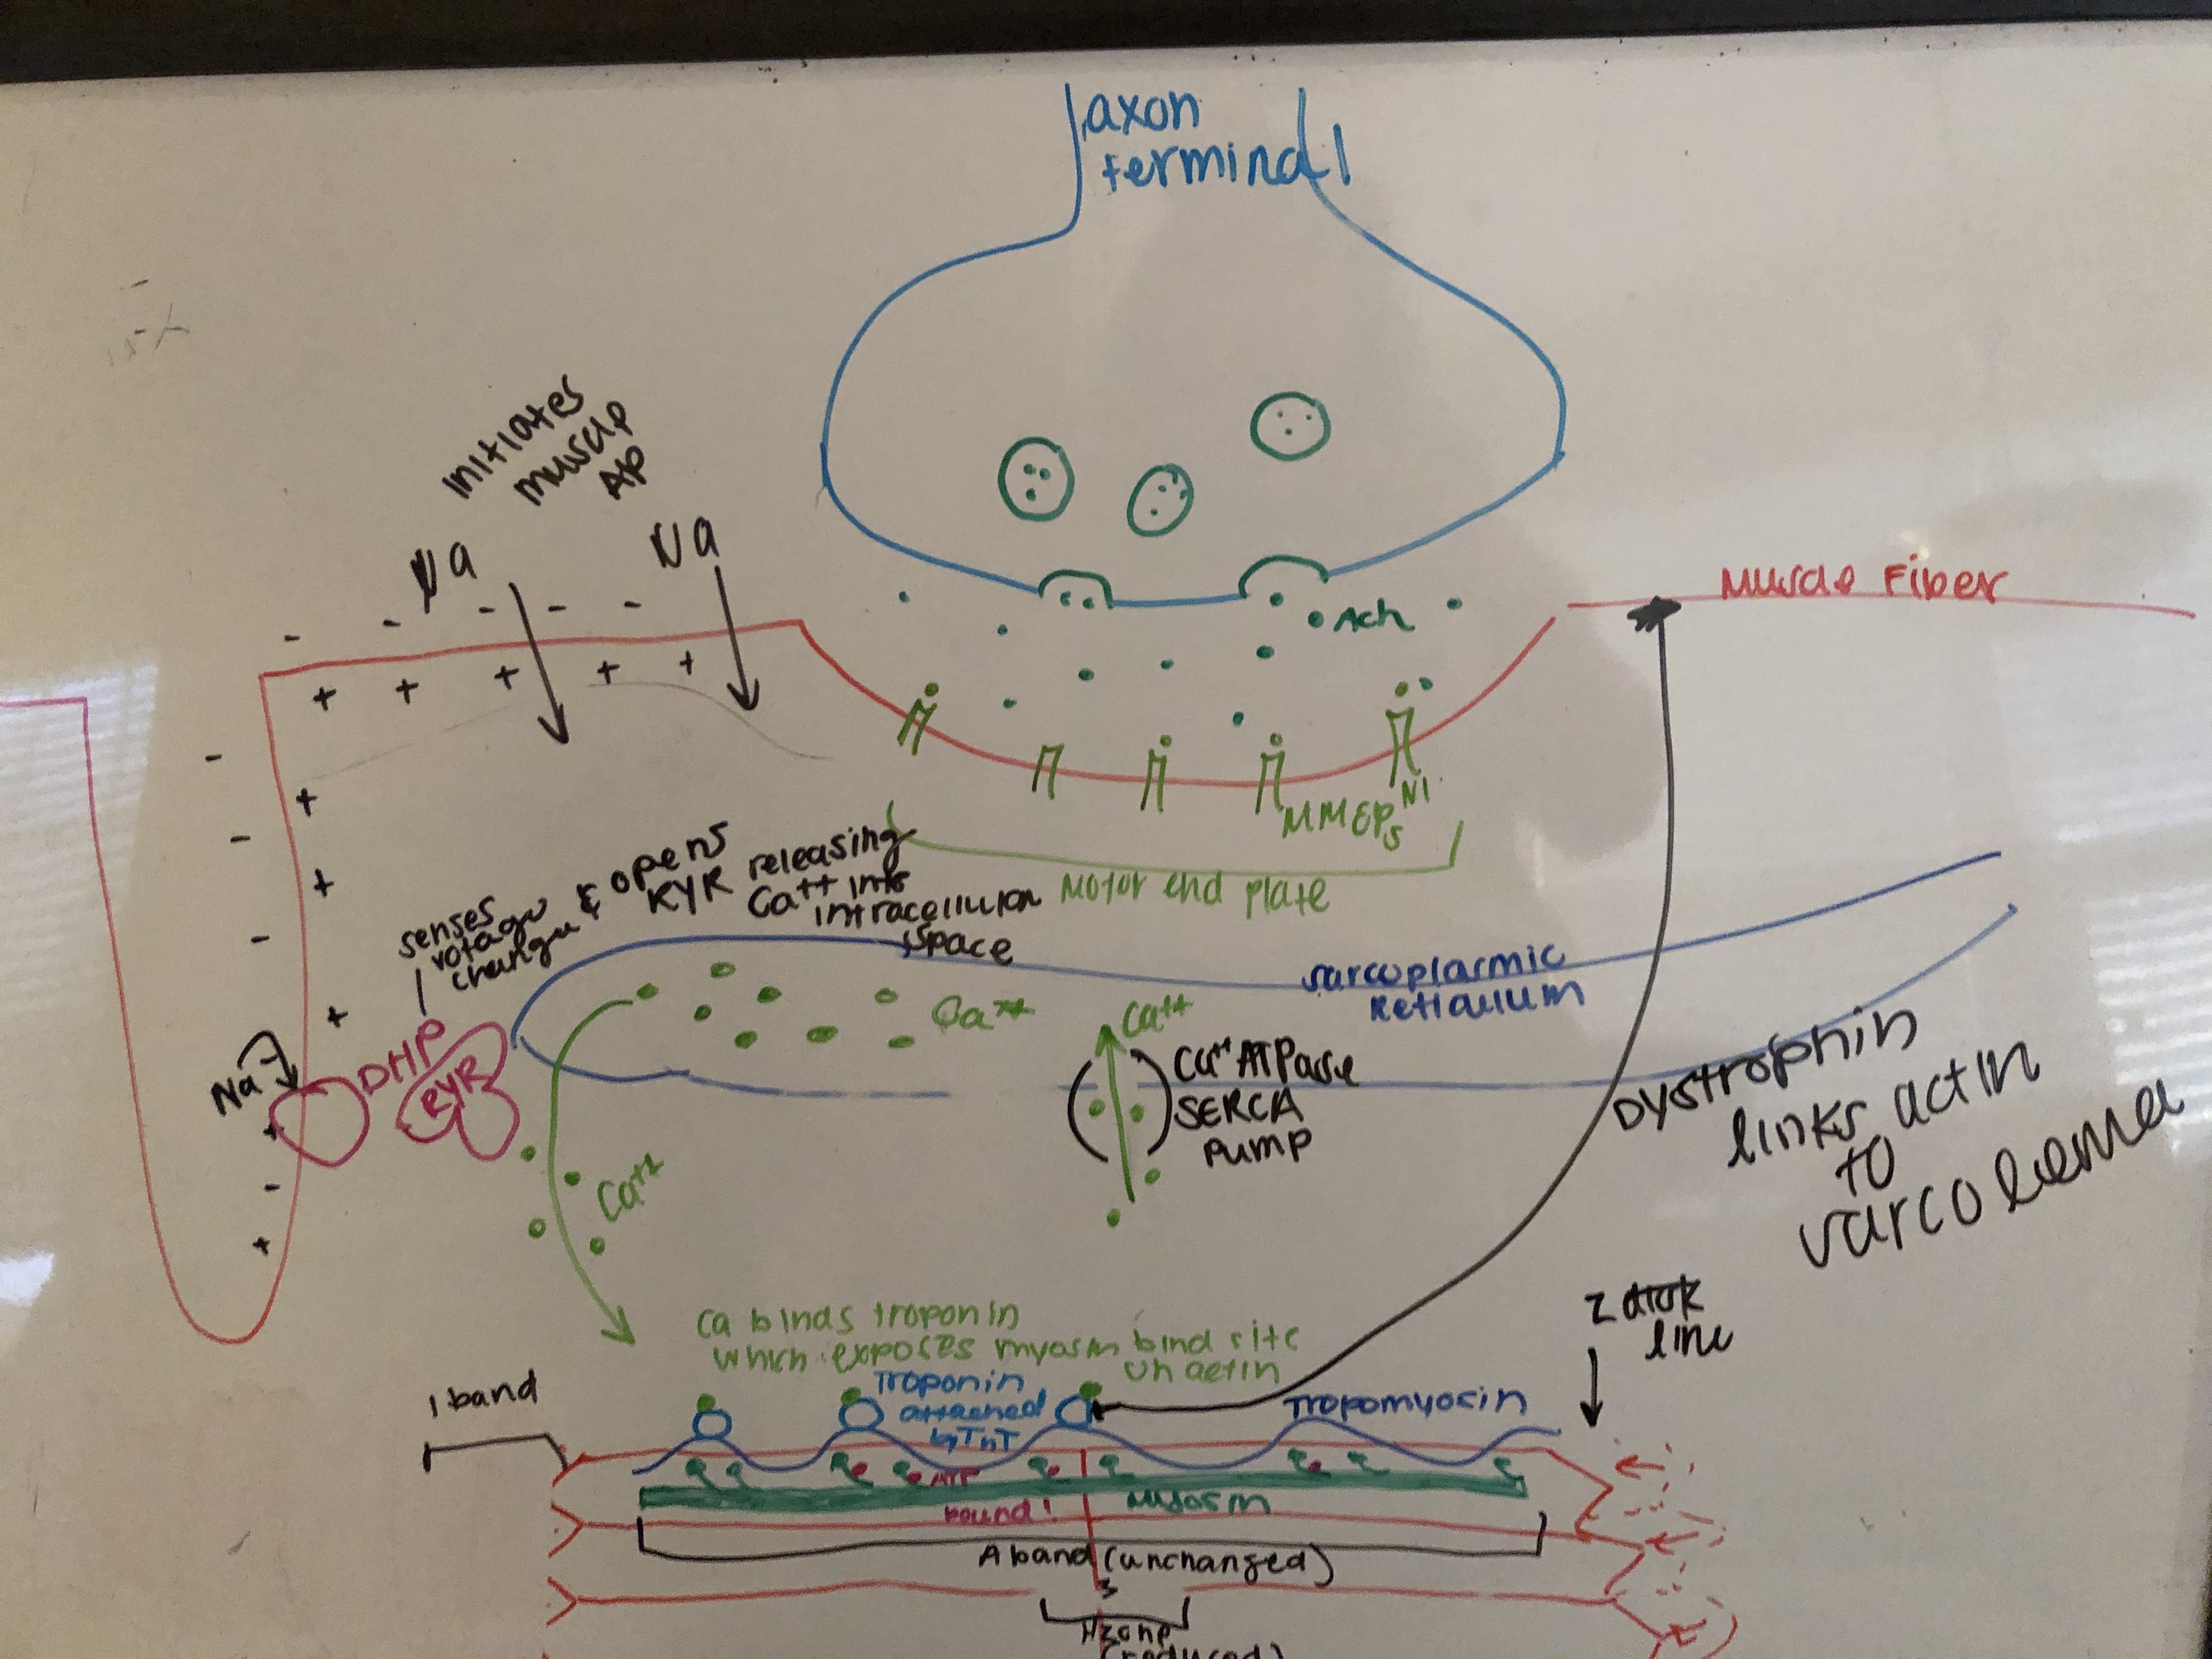 axon
terminal
initiates
muscle
AP
Na
Na
Ach
Muscle Fiber
MMEPs
N1
Motor end plate
senses
votage
change
& opens
RYR releasing
Ca++ into
intracellular
space
sarcoplasmic
Reticulum
Ca++
Ca++
Ca++ ATPase
SERCA
pump
Na
DHP
RYR
Ca++
Dystrophin
links actin
to
sarcolema
Ca binds troponin
which exposes myosin bind site
on actin
Z dark
line
I band
Troponin
attached
by TnT
Tropomyosin
ATP
bound!
Myosin
A band (unchanged)
H zone
(reduced)